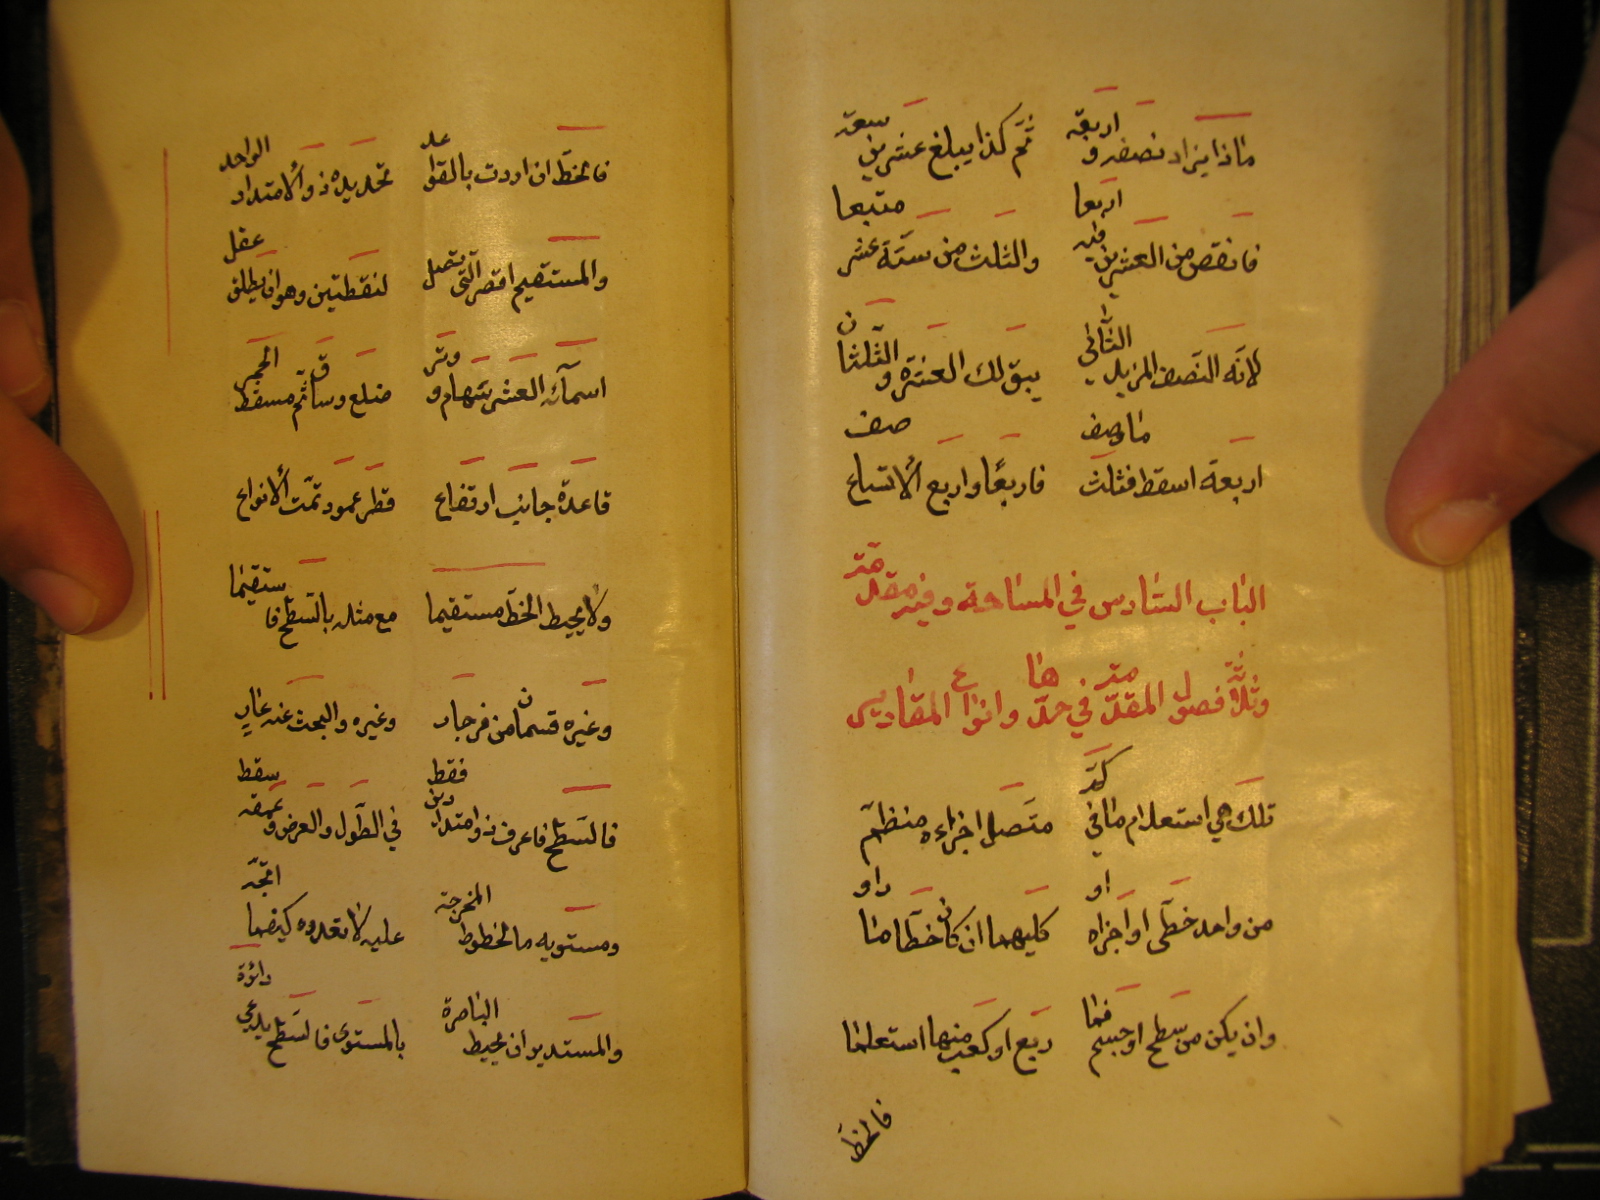 ماذا يزاد نصفه و اربعة ثم كذا يبلغ عشرين سبعة
اربعا متبعا
فانقص من العشرين فيه والثلث من ستة عشر
لانه النصف المزيد الثاني يبقى لك العشرة والثلثان
ما وصف صف
اربعة اسقط فثلث فاربعا واربع الاتساع
الباب السادس في المساحة وفيه مقدمة
وثلاثة فصول المقدمة في حدها وانواع المقادير
تلك هي استعلام ما في كم متصل اجزاءه منظم
من واحد خطى او اجزاه او كليهما ان كان خطا ما او
وان يكن من سطح او جسم فما ربع او كعب منها استعلما
فالخط
فالخط ان اردت بالقول تحديده ذو الامتداد الواحد
والمستقيم اقصر التى تصل لنقطتين وهو ان يطلق عقل
اسمائه العشر سهام و وتر ضلع وساق ثم مسقط الحجر
قاعدة جانب ارتفاع قطر عمود تمت الانواع
ولا يحيط الخط مستقيما مع مثله بالسطح فاستقيما
وغيره قسمان من فرجار وغيره والبحث عنه عار
فقط سقط
فالسطح فاعرف ذو امتدادين في الطول والعرض وعمقه
ومستويه ما الخطوط المخرجة عليه لا تعدوه كيفما اتجه
والمستدير ان يحيط الباصرة بالمستوى فالسطح يدعى دائرة